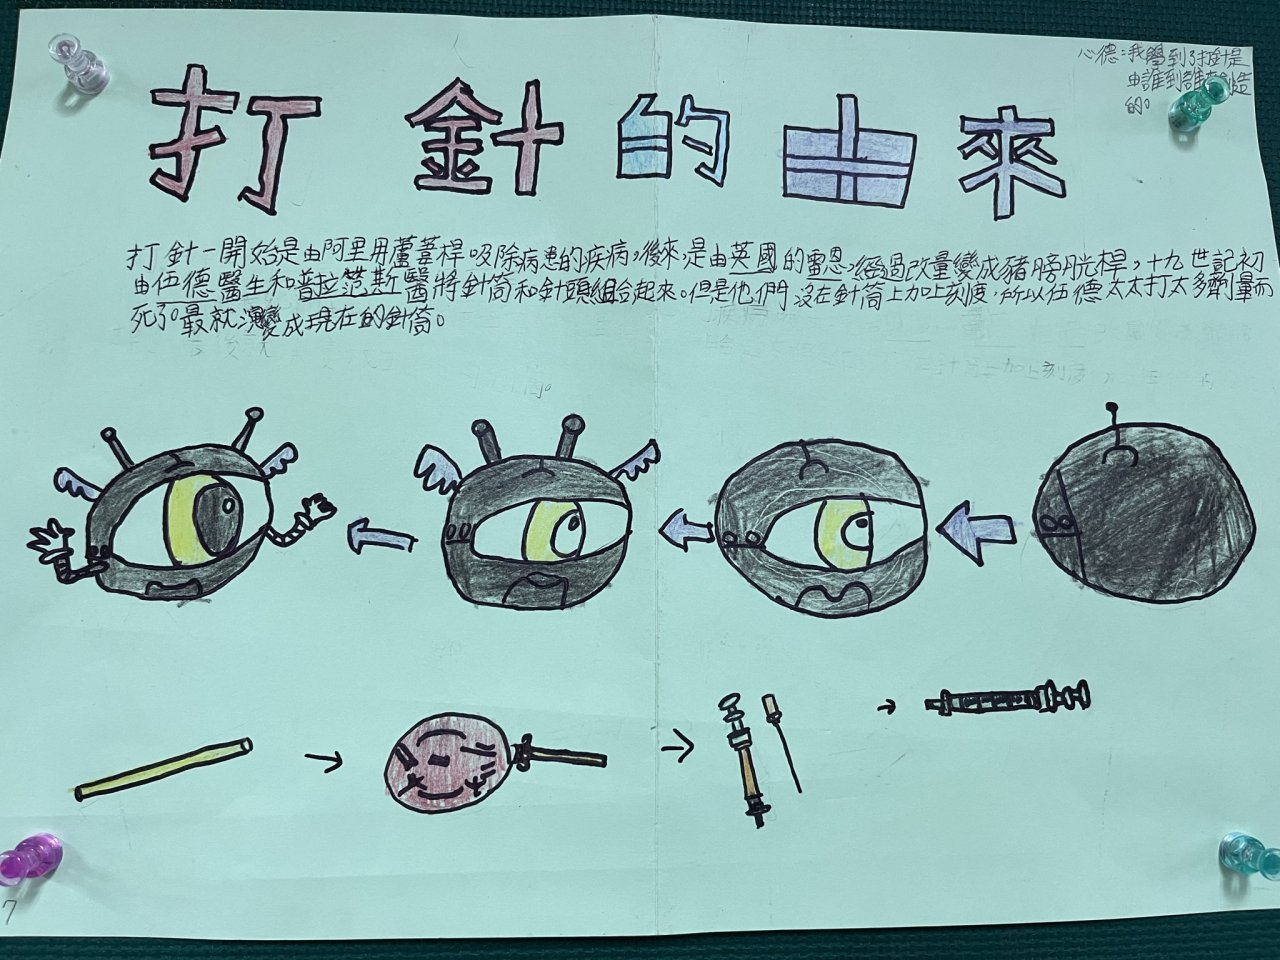 打針的由來
心德:我學到了打針是
由誰到誰創造
的。
打針一開始是由阿里用蘆葦桿吸除病患的疾病,後來,是由英國的雷恩,經過改量變成豬膀胱桿,十九世記初
由伍德醫生和普拉范斯醫將針筒和針頭組合起來。但是他們沒在針筒上加上刻度,所以伍德太太打太多劑量而
死了。最就演變成現在的針筒。
7